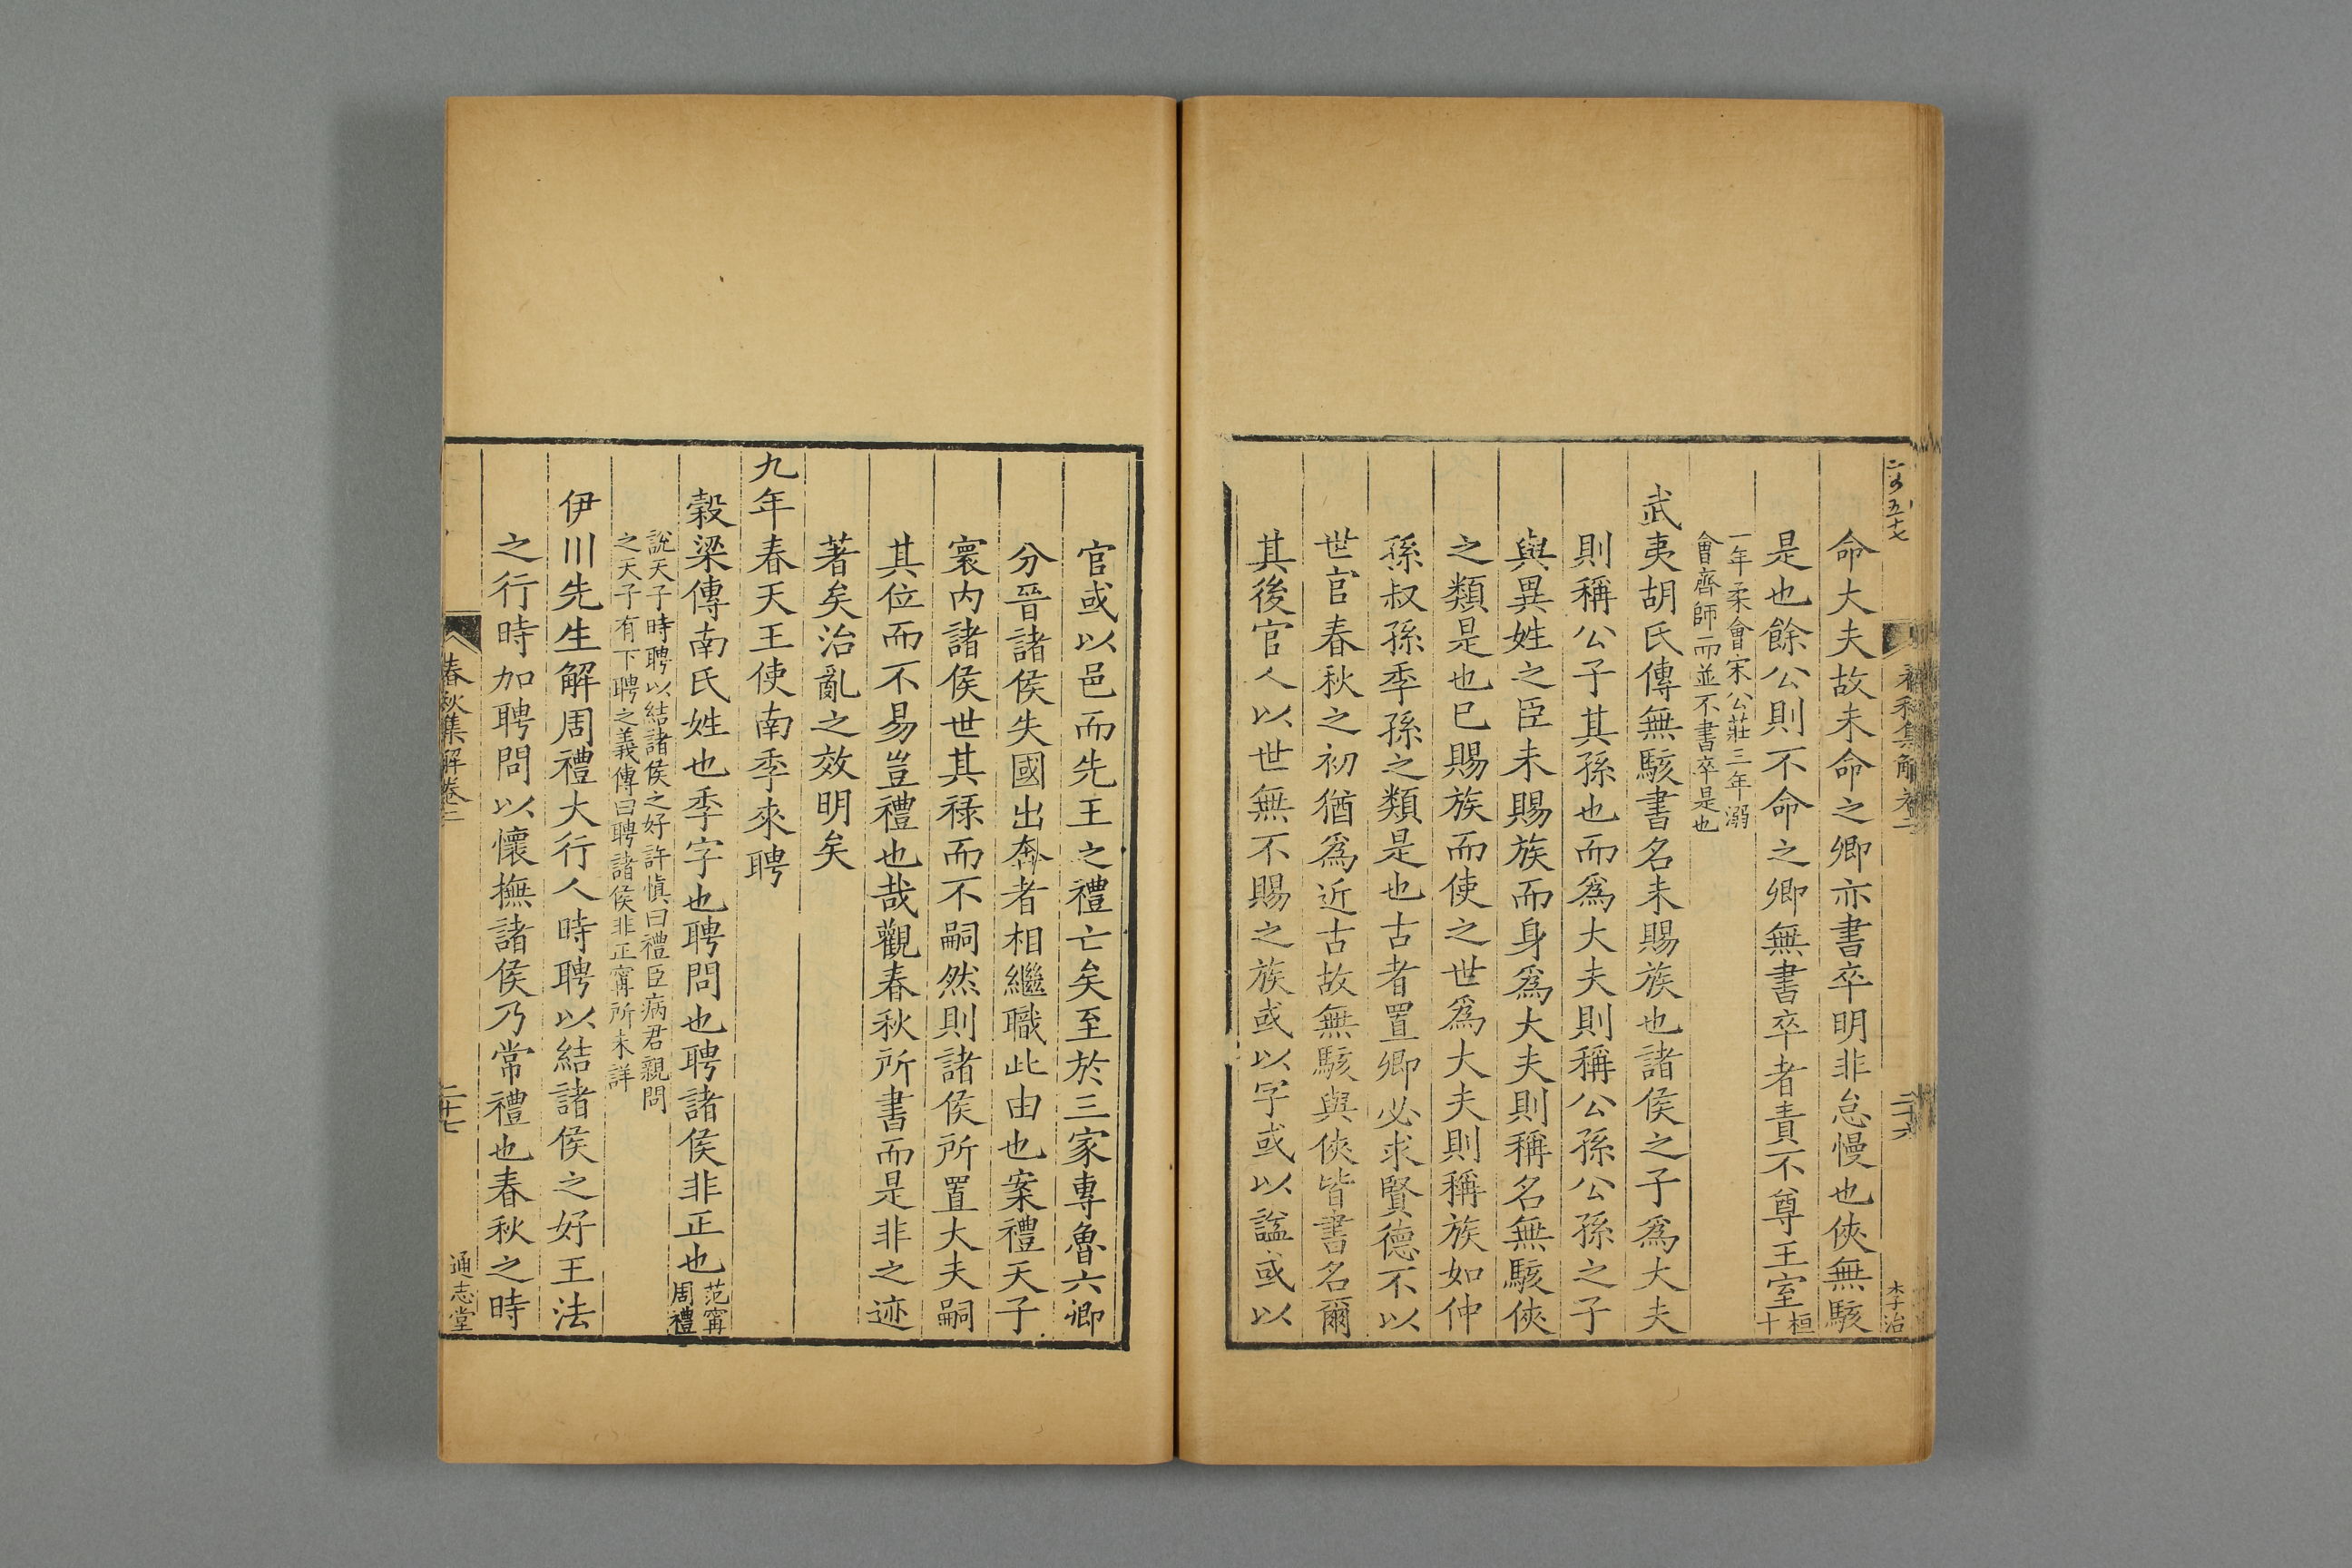 命大夫故未命之卿亦書卒明非怠慢也俠無駭
是也餘公則不命之卿無書卒者責不尊王室桓十
一年柔會宋公莊三年溺
會齊師而並不書卒是也
武夷胡氏傳無駭書名未賜族也諸侯之子爲大夫
則稱公子其孫也而爲大夫則稱公孫公孫之子
與異姓之臣未賜族而身爲大夫則稱名無駭俠
之類是也已賜族而使之世爲大夫則稱族如仲
孫叔孫季孫之類是也古者置卿必求賢德不以
世官春秋之初猶爲近古故無駭與俠皆書名爾
其後官人以世無不賜之族或以字或以諡或以
官或以邑而先王之禮亡矣至於三家專魯六卿
分晉諸侯失國出奔者相繼職此由也案禮天子
寰内諸侯世其祿而不嗣然則諸侯所置大夫嗣
其位而不易豈禮也哉觀春秋所書而是非之迹
著矣治亂之效明矣
九年春天王使南季來聘
穀梁傳南氏姓也季字也聘問也聘諸侯非正也范甯周禮
說天子時聘以結諸侯之好許愼曰禮臣病君親問
之天子有下聘之義傳曰聘諸侯非正甯所未詳
伊川先生解周禮大行人時聘以結諸侯之好王法
之行時加聘問以懷撫諸侯乃常禮也春秋之時
春秋集解卷二
二十七
通志堂